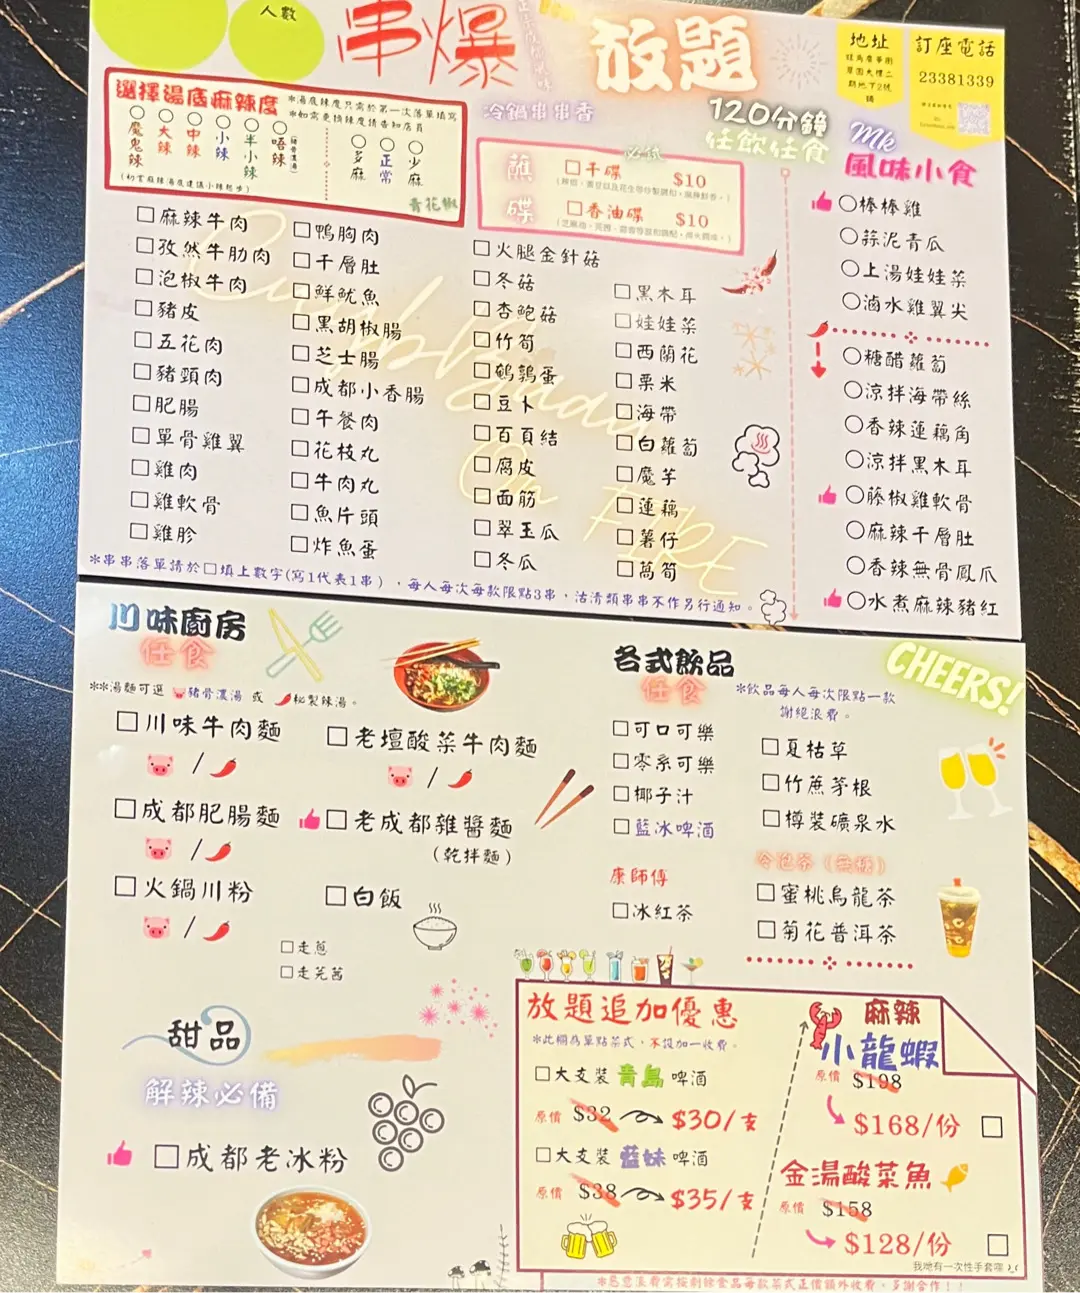 人數
串爆
放題
冷鍋串串香
120分鐘
任飲任食
地址
訂座電話
23381339
選擇湯底麻辣度
*湯底辣度只需於第一次落單填寫
*如需更換辣度請告知店員
○魔鬼辣
○大辣
○中辣
○小辣
○半小辣
○唔辣
(豬骨濃湯)
○多麻
○正常
○少麻
(初嘗麻辣湯底建議小辣起步)
青花椒
蘸碟
必試
□干碟 $10
□香油碟 $10
□麻辣牛肉
□孜然牛肋肉
□泡椒牛肉
□豬皮
□五花肉
□豬頸肉
□肥腸
□單骨雞翼
□雞肉
□雞軟骨
□雞胗
□鴨胸肉
□千層肚
□鮮魷魚
□黑胡椒腸
□芝士腸
□成都小香腸
□午餐肉
□花枝丸
□牛肉丸
□魚片頭
□炸魚蛋
□火腿金針菇
□冬菇
□杏鮑菇
□竹筍
□鵪鶉蛋
□豆卜
□百頁結
□腐皮
□面筋
□翠玉瓜
□冬瓜
□黑木耳
□娃娃菜
□西蘭花
□粟米
□海帶
□白蘿蔔
□魔芋
□蓮藕
□薯仔
□萵筍
On FIRE
*串串落單請於□填上數字(寫1代表1串)，每人每次每款限點3串，沽清類串串不作另行通知。
Mk
風味小食
○棒棒雞
○蒜泥青瓜
○上湯娃娃菜
○滷水雞翼尖
○糖醋蘿蔔
○涼拌海帶絲
○香辣蓮藕角
○涼拌黑木耳
○藤椒雞軟骨
○麻辣千層肚
○香辣無骨鳳爪
○水煮麻辣豬紅
川味廚房
任食
**湯麵可選 豬骨濃湯 或 秘製辣湯。
□川味牛肉麵
/
□老壇酸菜牛肉麵
/
□成都肥腸麵
/
□老成都雜醬麵
(乾拌麵)
□火鍋川粉
/
□白飯
□走蔥
□走芫茜
甜品
解辣必備
□成都老冰粉
各式飲品
任食
CHEERS!
*飲品每人每次限點一款
謝絕浪費。
□可口可樂
□零系可樂
□椰子汁
□藍冰啤酒
康師傅
□冰紅茶
□夏枯草
□竹蔗茅根
□樽裝礦泉水
冷泡茶(無糖)
□蜜桃烏龍茶
□菊花普洱茶
放題追加優惠
*此欄為單點菜式，不設加一收費。
□大支裝 青島 啤酒
原價 $32 $30/支
□大支裝 藍妹 啤酒
原價 $38 $35/支
麻辣
小龍蝦
原價 $198
$168/份 □
金湯酸菜魚
原價 $158
$128/份 □
我哋有一次性手套㗎
*惡意浪費需按剩餘食品每款菜式正價額外收費，多謝合作！！